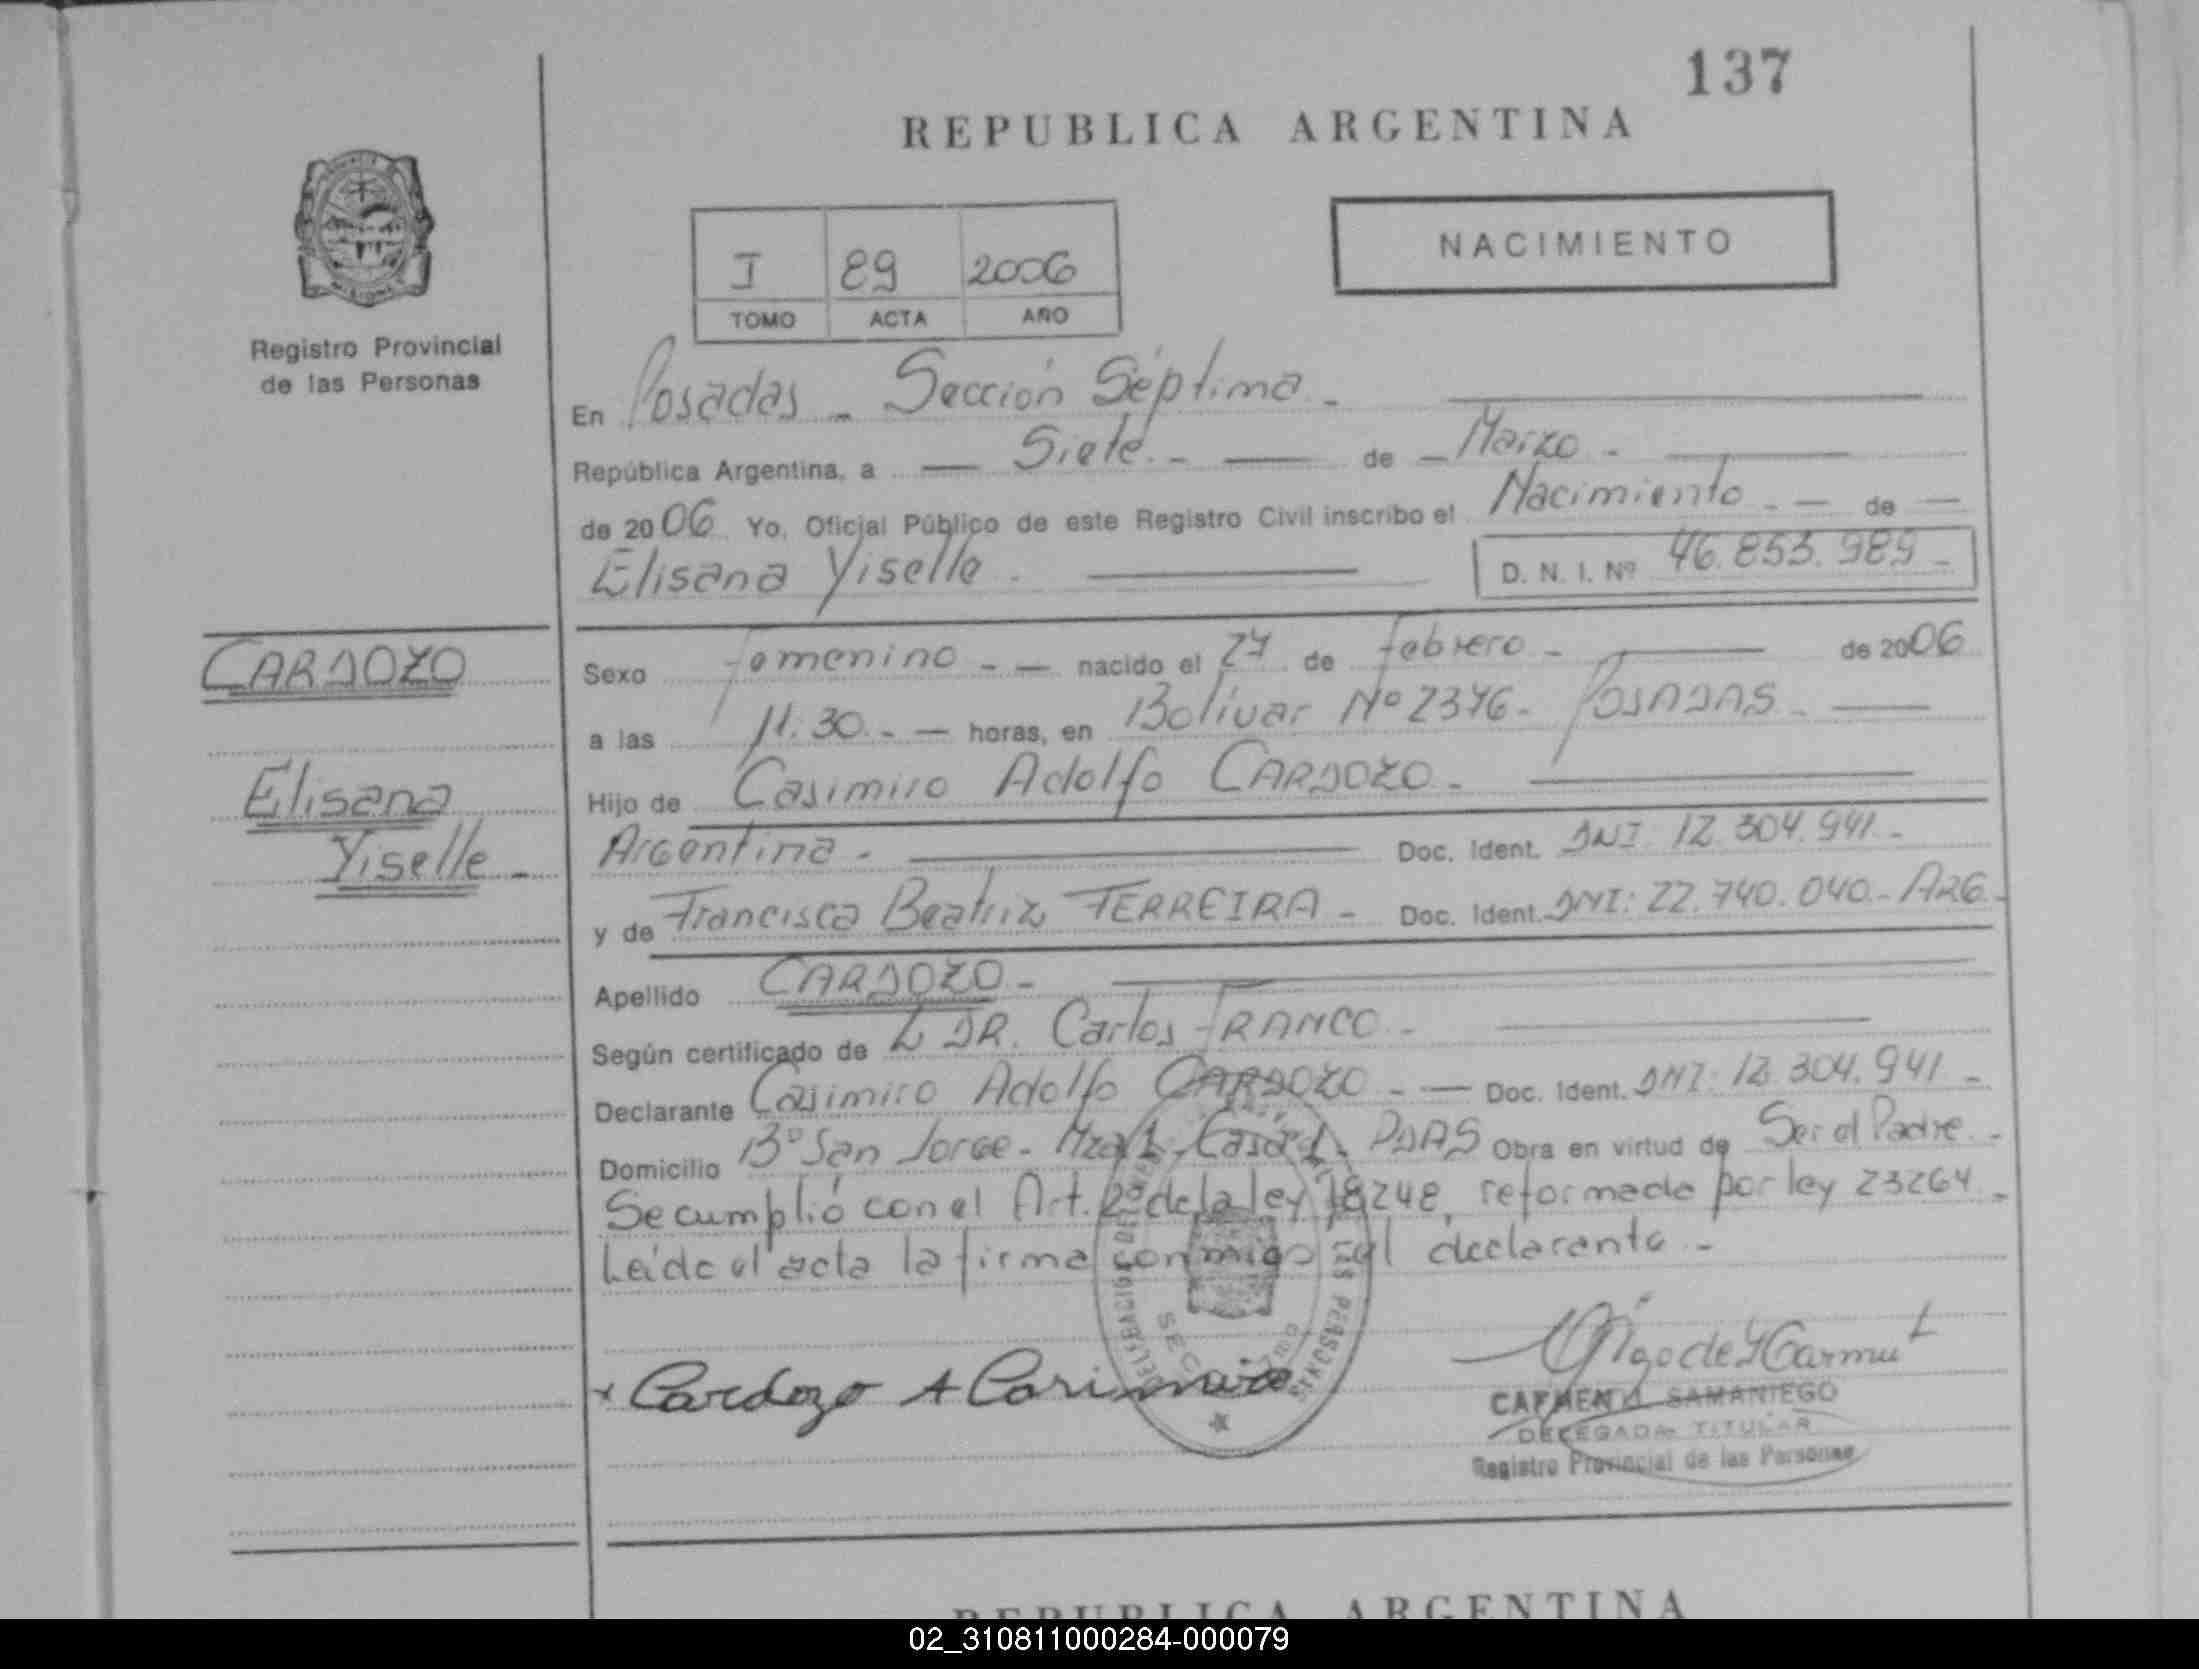 137
REPUBLICA ARGENTINA
NACIMIENTO
I 89 2006
TOMO ACTA AÑO
Registro Provincial
de las Personas
En Posadas - Sección Séptima -
República Argentina, a — Siete. - — de — Marzo -
de 2006 Yo, Oficial Público de este Registro Civil inscribo el Nacimiento - — de —
Elisana Yiselle - D. N. I. Nº 46.853.989 -
CARDOZO
Elisana
Yiselle -
Sexo Femenino - — nacido el 27 de Febrero - de 2006
a las 11:30 - — horas, en Bolívar Nº 2376 - POSADAS -
Hijo de Casimiro Adolfo CARDOZO -
Argentina - Doc. Ident. DNI. 12.304.941 -
y de Francisca Beatriz FERREIRA - Doc. Ident. DNI: 22.740.040 - ARG -
Apellido CARDOZO -
Según certificado de DR. Carlos FRANCO -
Declarante Casimiro Adolfo CARDOZO - — Doc. Ident. DNI: 12.304.941 -
Domicilio Bº San Jorge - Mza 1 - Casa 1 - PDAS Obra en virtud de Ser el Padre -
Se cumplió con el Art. 2º de la ley 18248, reformada por ley 23264 -
Leída el acta la firma conmigo el declarante -
x Cardozo A Casimiro
CARMEN SAMANIEGO
DELEGADA TITULAR
Registro Provincial de las Personas
REPUBLICA ARGENTINA
02_310811000284-000079